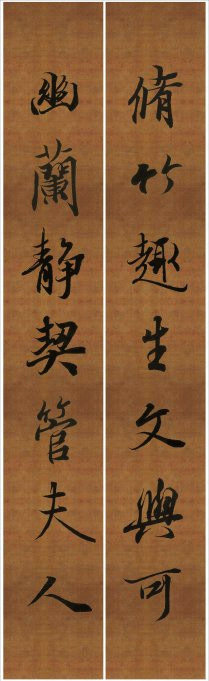 脩竹趣生文與可
幽蘭靜契管夫人